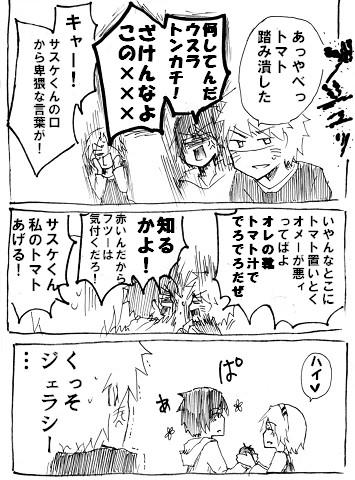 あっやべっ
トマト
踏み潰した
何してんだ
ウスラ
トンカチ！
ざけんなよ
この×××
キャー！
サスケくんの口
から卑猥な言葉が！
いやんなとこに
トマト置いとく
オメーが悪ィ
ってばよ
オレの靴
トマト汁で
でろでろだぜ
知る
かよ！
赤いんだから
フツーは
気付くだろ！
サスケくん
私のトマト
あげる！
ハイ♥
ぱ
あ
くっそ
ジェラシー
…